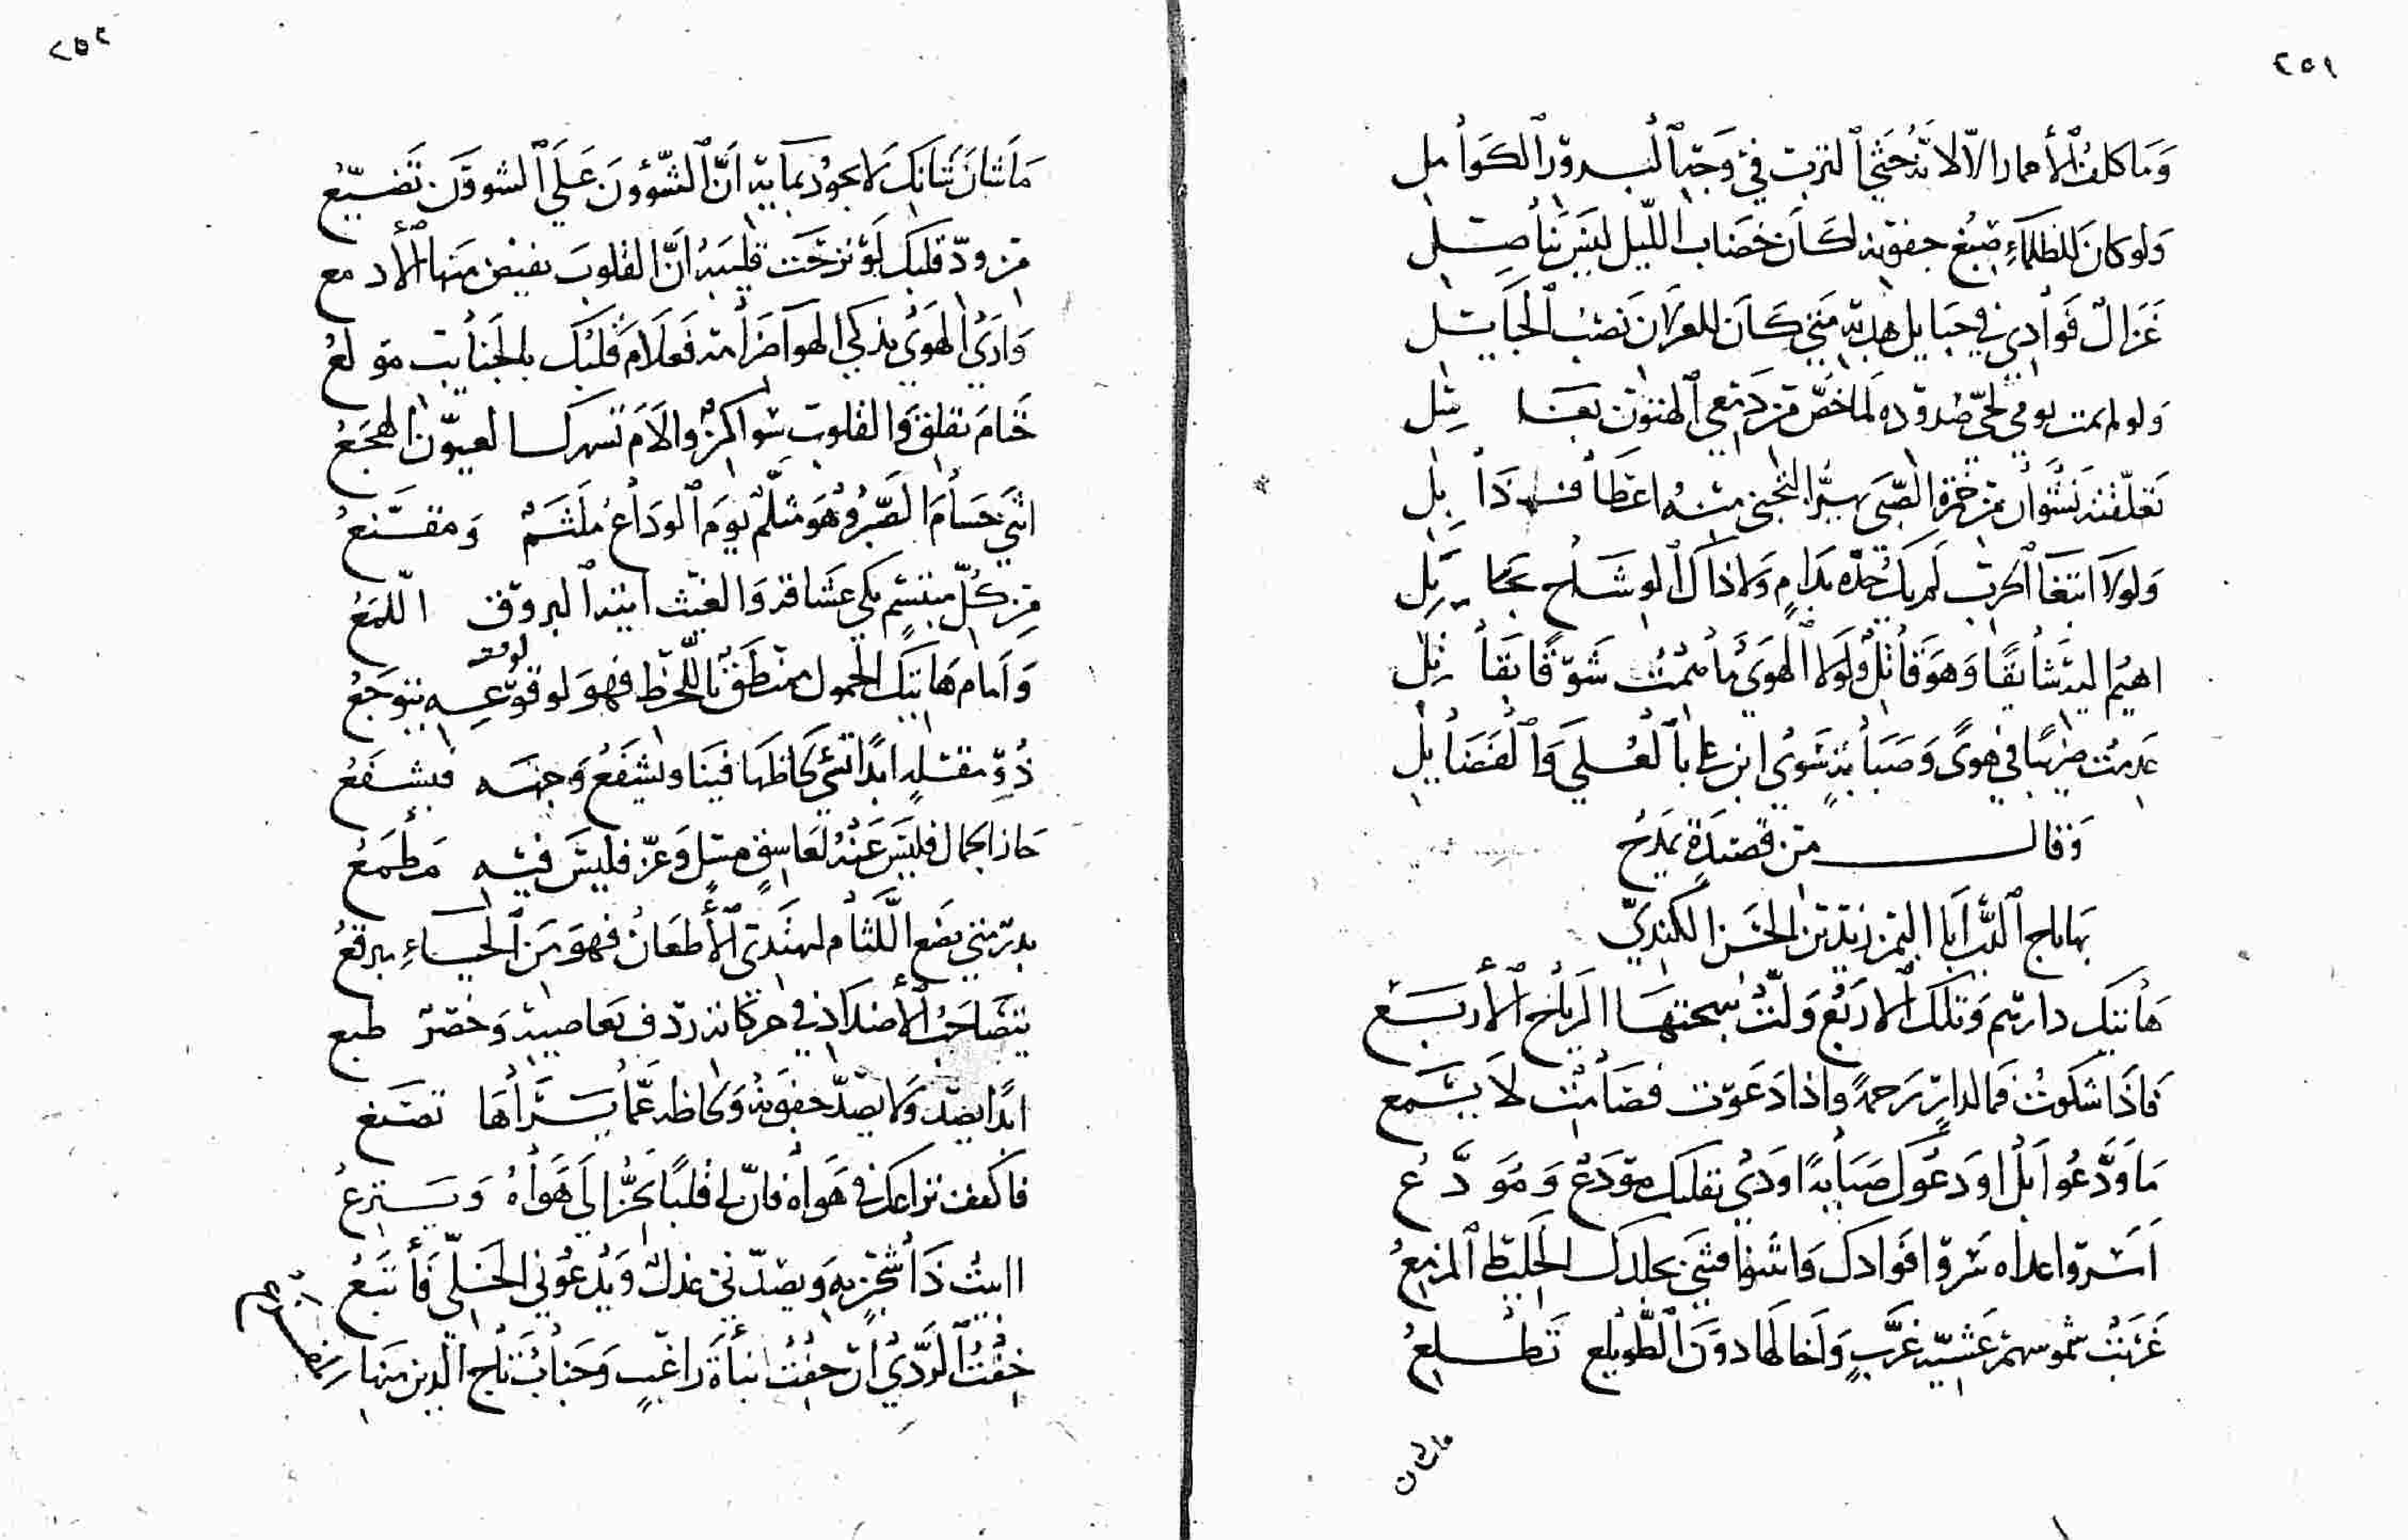 ٢٥١
وَمَا كلفُ الأقمار الّا لانّه حَثَى التربَ في وَجه البدور الكوامل
وَلو كانَ للظلماءِ صبغ جفونه لكَان خضَاب اللّيل ليسَ بناصل
غزال فوادي في حبايل هدبه متى كان للغزلان نصب الحبايل
ولو لم يمت نومي لحيّ صدوده لما خصّ من دمعي الهتون بغاسل
تعلّقته نشوانَ من خمرة الصّبى يهزّ التجني منه اعطاف ذابل
وَلولا ابتغا الحرب لم يك خدّه بدامٍ ولا ذاك الوشاح بجايل
اهيم اليه شايقًا وَهوَ قاتل وَلولا الهوَى ما همتُ شوقًا بقاتل
عدمت ضريبًا في هوًى وَصبابة سوى ابن علي بالعلى وَالفضايل
وَقال من قصيدة يمدح
بها تاج الدين ابا اليمن زيد بن الحسن الكندي
هَاتيك دارهم وَتلك الاربع وَلّت ببهجتها الرياح الأربع
فَاذا شكوت فما لدارٍ رحمة واذا دعوت فصامت لا يسمع
مَا وَدّعُوا بل اودعوك صبابة اودى بقلبك مودَع وَمُوَدّع
اسروا غداه سروا فوادك وَانتنوا فثنى تجلدك الخليط المزمع
غربت شموسهم عشيّة غرّبٍ وَاخالها دوَن الطويلع تطلع
ماشان
٢٥٢
مَا شانَ شانك لا يجود بمايه انّ الشؤون على الشوون تضيّع
من ودّ قلبك لو نزحت قليبه انّ القلوب يفيض منها الأدمع
وَارى الهوى يذكي الهوا ضرامه فعلام قلبك بالجنايب مولع
حَتّامَ تقلق وَالقلوب سواكن والام تسهرك العيون الهجع
انى حسام الصبر وهو مثلّم يوم الوداع ملثم وَمقنع
من كلّ مبتسم بكى عشاقه وَالغيث ابتدا البروق اللمّع
وَامام هاتيك الحمول ممنطق باللّحظ فهو لوقعه يتوجع
ذو مقلةٍ ابدًا تسيء لحاظها فينا ويشفع وجهه فيشفع
حاز الجمال فليس عنه لعاشقٍ مسلٍ وَعزّ فليس فيه مطمع
بدر متى يضع اللثام لمهتدي الأظعان فهو من الحياءِ يبرقع
يتضاحب الأضداد في حركاته ردف تعاصيه وخصر طيع
ابدًا يصدّ وَلا يصدّ جفونه وَلحاظه عمّا يسرّ اها تصنع
فاكفف نزاعك في هواه فانّ لي قلبًا يحنّ الى هواه وَينزع
االيت ذا شجنٍ به ويصدّني عذل وَيدعوني الخليّ فأتبع
خفت الردي ان خفت نبأة راغبٍ وَجناب تاج الدين منها